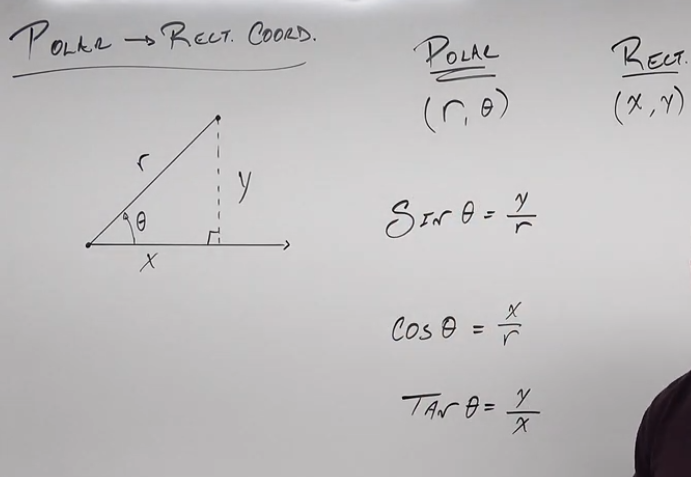 POLAR → RECT. COORD.
POLAR
(r, θ)
RECT.
(x, y)
r
θ
x
y
SIN θ = y/r
COS θ = x/r
TAN θ = y/x